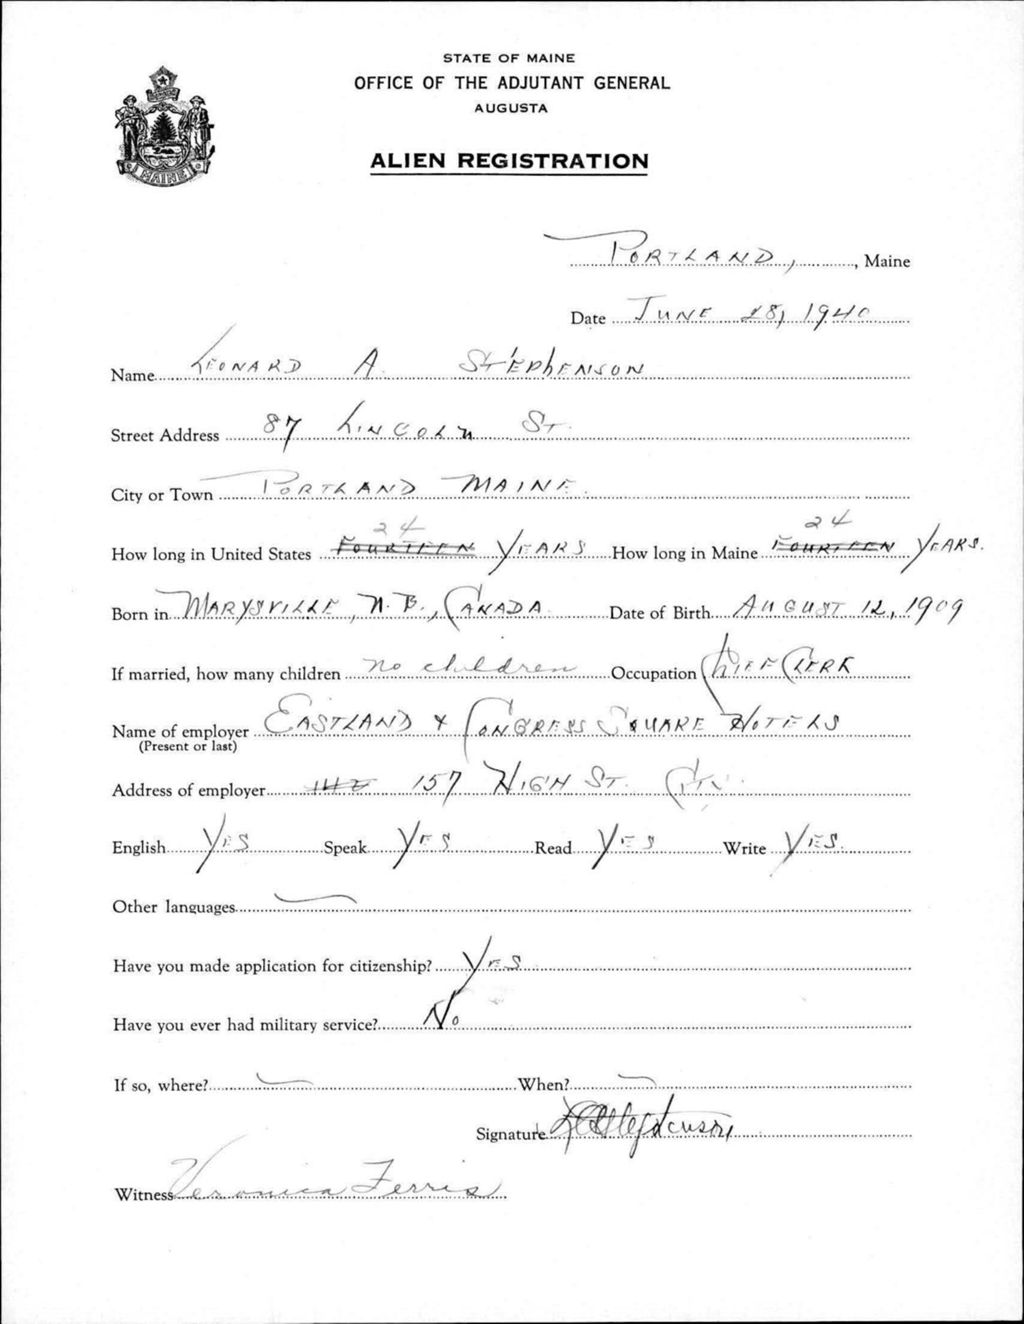 STATE OF MAINE
OFFICE OF THE ADJUTANT GENERAL
AUGUSTA
ALIEN REGISTRATION
MAINE
PORTLAND, , Maine
Date JUNE 28, 1940
Name LEONARD A. STEPhENSON
Street Address 87 LINCOLN ST.
City or Town PORTLAND MAINE.
24 24
How long in United States FOURTEEN YEARS How long in Maine FOURTEEN YEARS.
Born in MARYSVILLE, N.B., CANADA Date of Birth AUGUST 12, 1909
If married, how many children no children Occupation ChIEF CLERK
Name of employer EASTLAND & CONGRESS SQUARE HOTELS
(Present or last)
Address of employer 157 HIGH ST. CITY.
English YES Speak YES Read YES Write YES.
Other languages
Have you made application for citizenship? YES
Have you ever had military service? No
If so, where? When?
Signature Stephenson
Witness Veronica Ferris